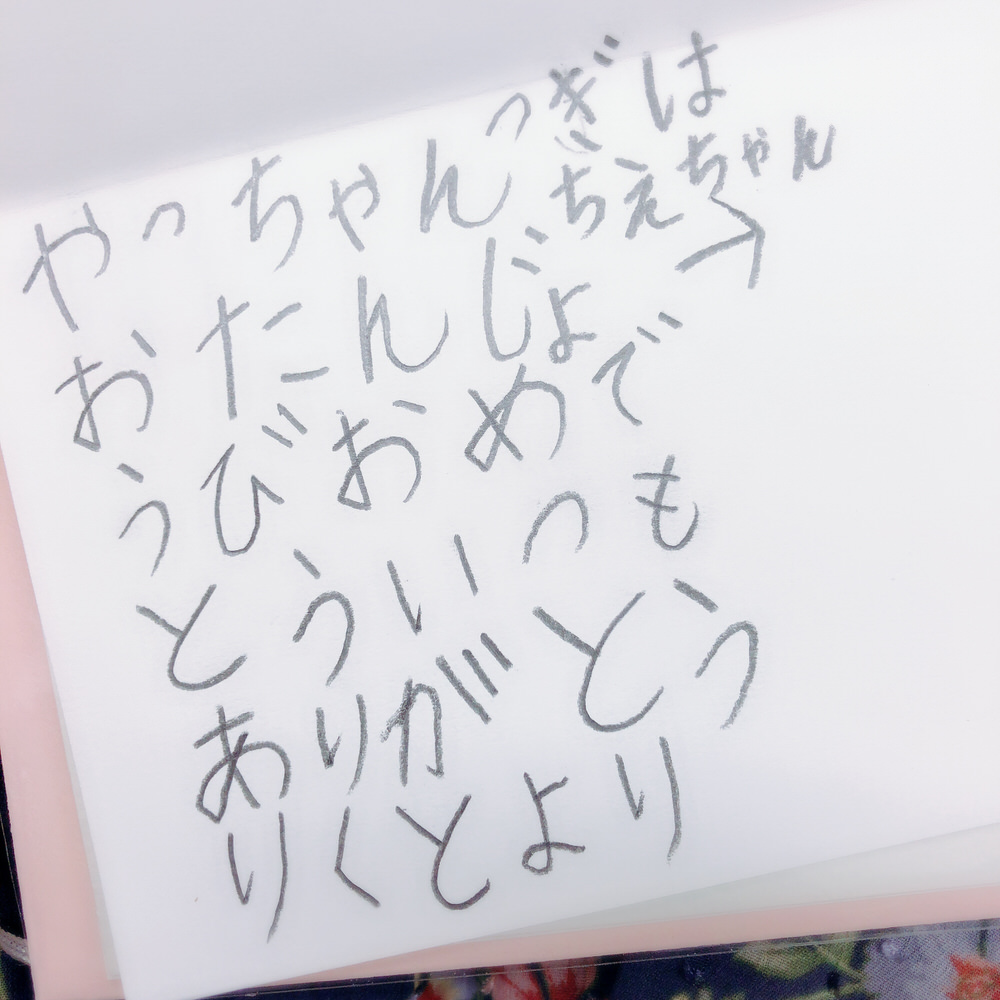 やっちゃん
つぎは
ちえちゃん
→
おたんじょ
うびおめで
とういつも
ありがとう
りくとより